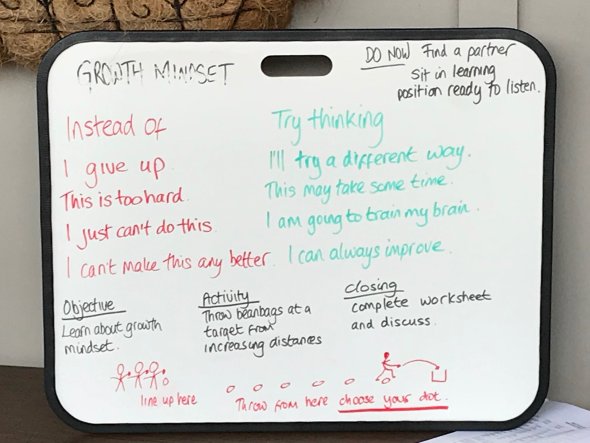 GROWTH MINDSET
DO NOW Find a partner
sit in learning
position ready to listen.
Instead of
I give up
This is too hard.
I just can't do this.
I can't make this any better.
Try thinking
I'll try a different way.
This may take some time.
I am going to train my brain.
I can always improve.
Objective
Learn about growth
mindset.
Activity
Throw beanbags at a
target from
increasing distances
Closing
complete worksheet
and discuss.
line up here
Throw from here choose your dot.